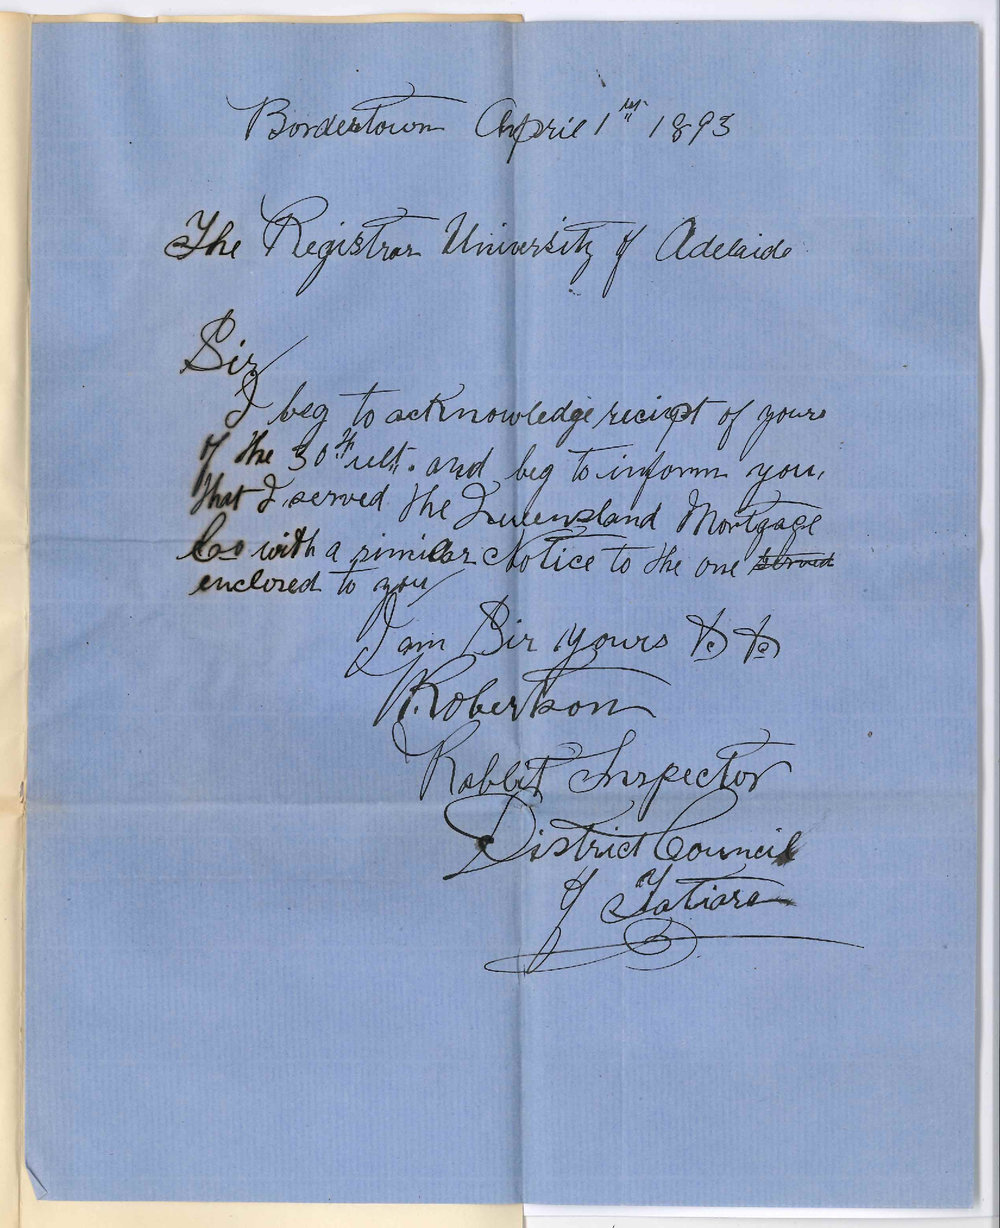 Bordertown April 1st 1893
The Registrar University of Adelaide
Sir
I beg to acknowledge reciept of yours
of the 30th ult. and beg to inform you,
that I served the Queensland Mortgage
Co with a similar Notice to the one served
enclosed to you
I am Sir yours &c &c
Robertson
Rabbit Inspector
District Council
of Tatiara